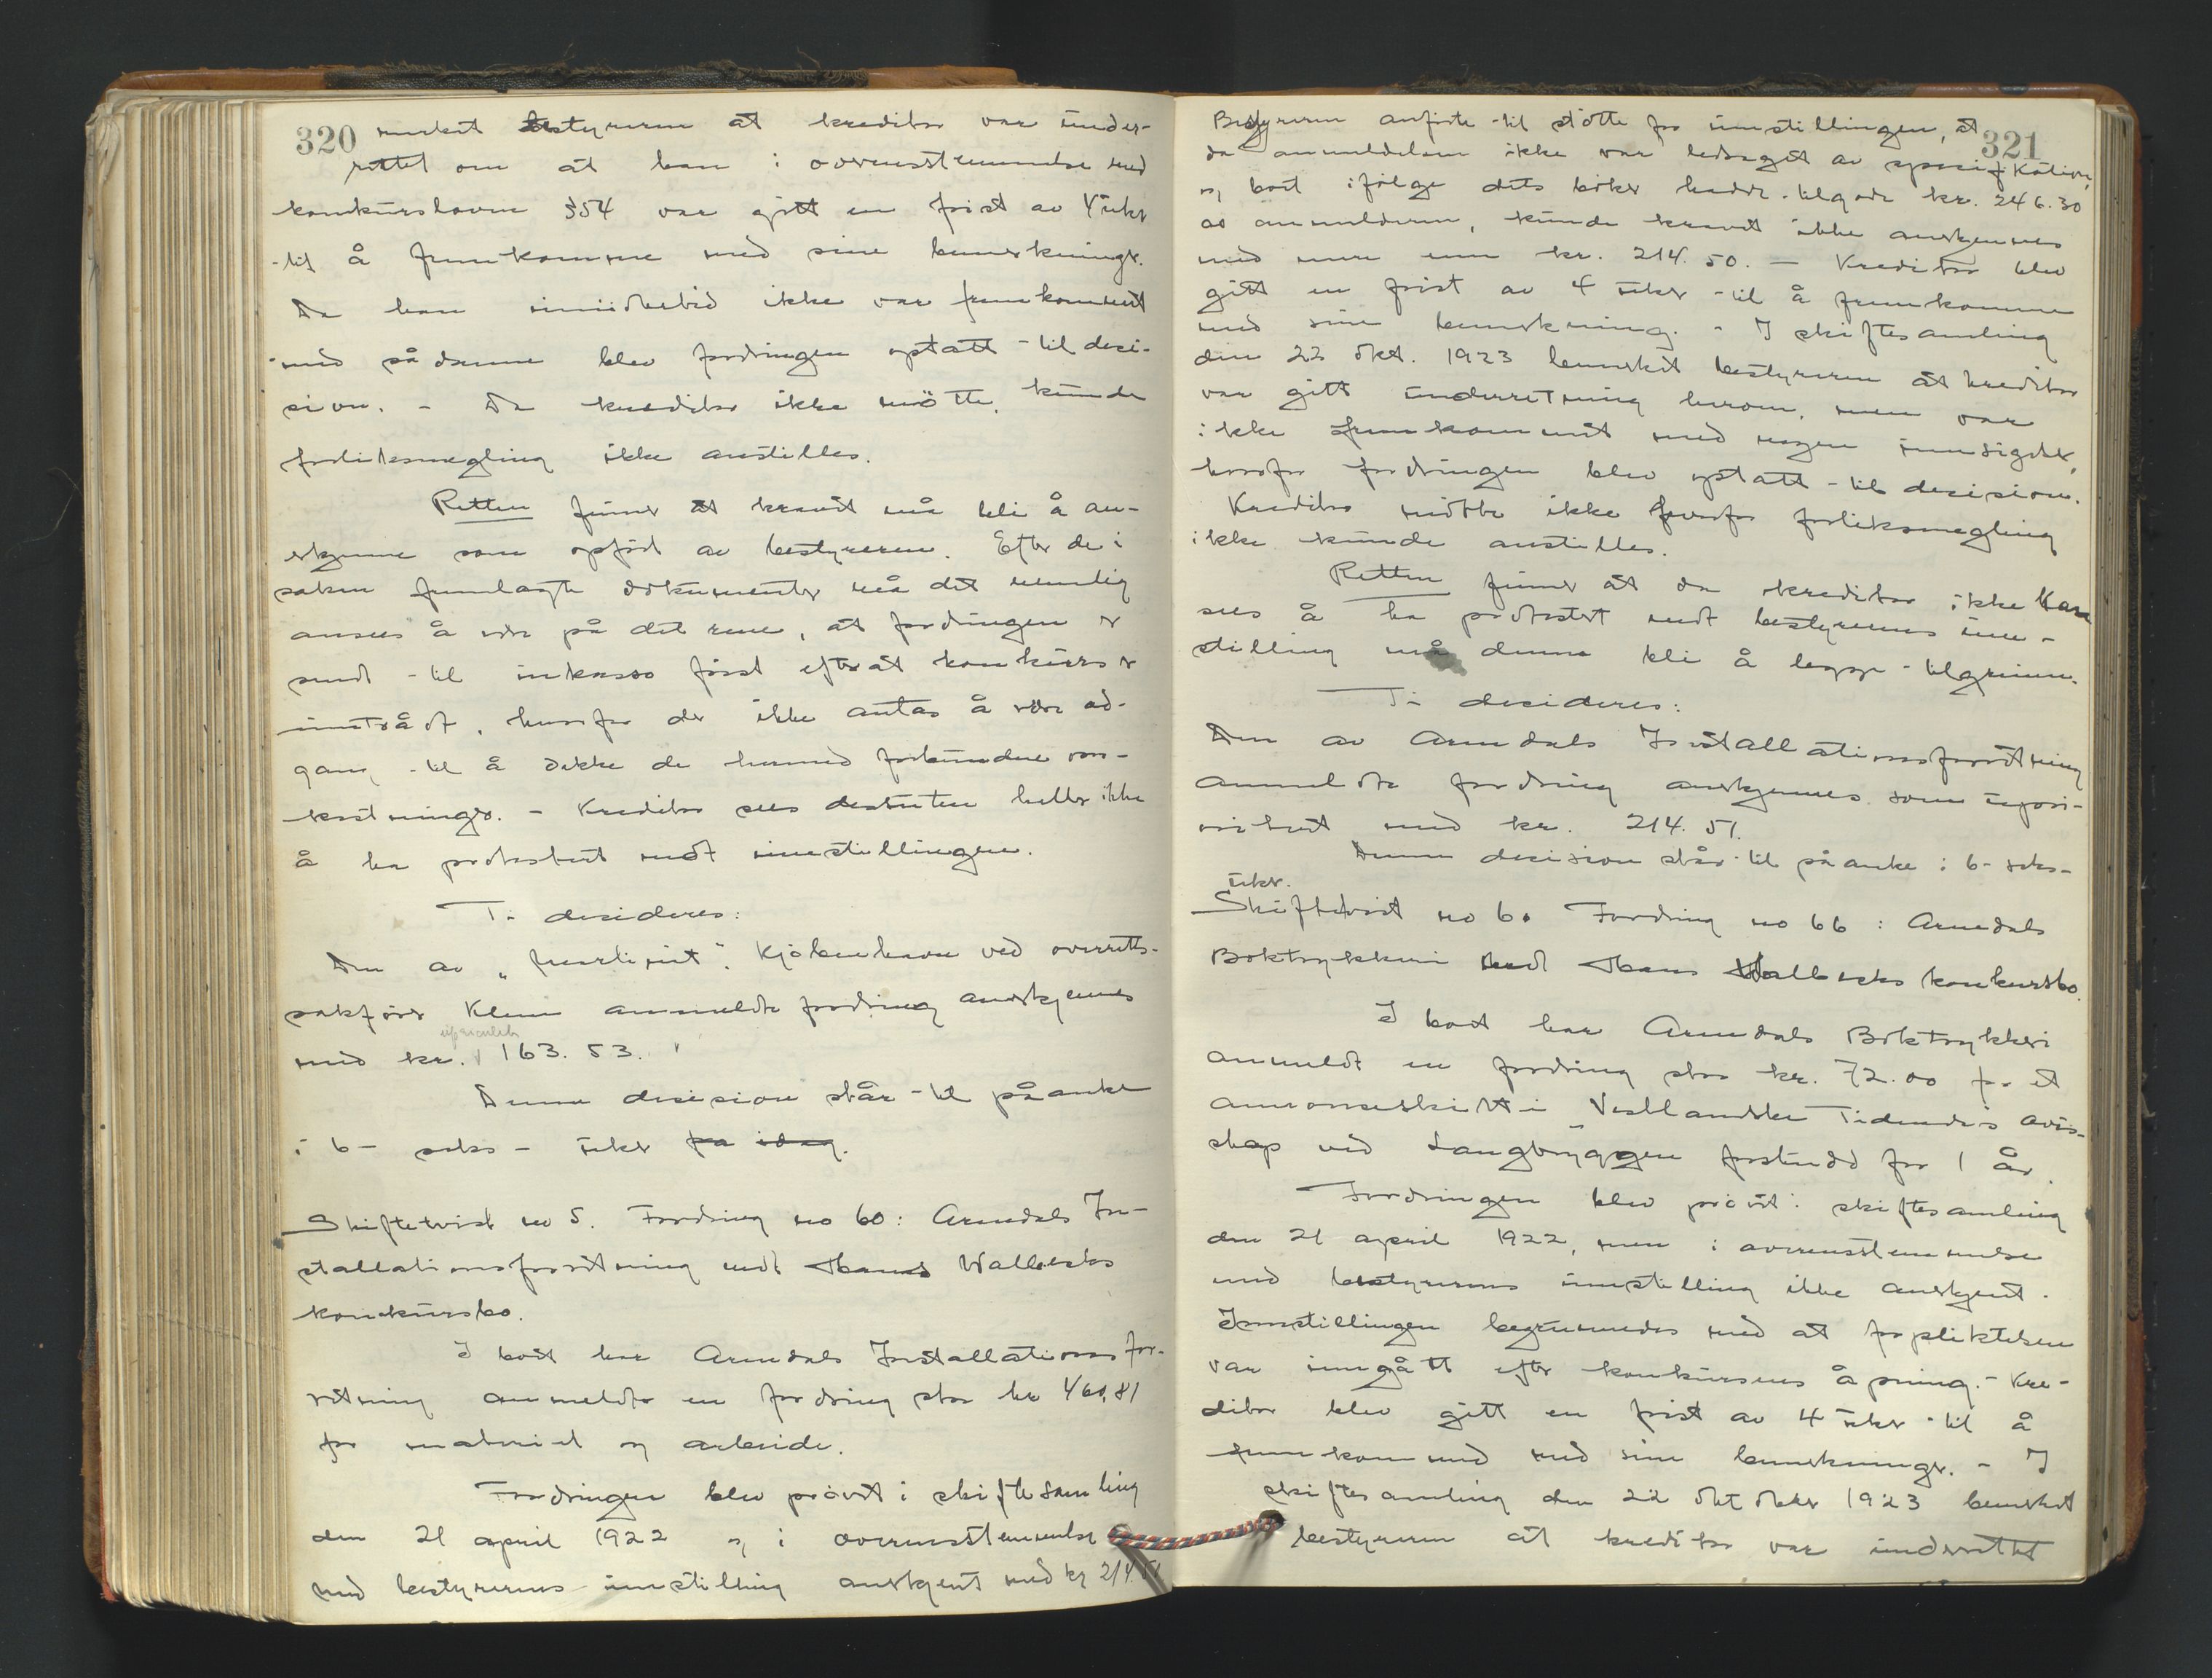 320
merket bestyreren at kreditor var under-
rettet om at han i overensstemmelse med
konkursloven §54 var gitt en frist av 4 uker
til å fremkomme med sine bemerkninger.
Da han imidlertid ikke var fremkommet
med sådanne blev fordringen optatt til deci-
sion. - Da kreditor ikke møtte, kunde
forliksmegling ikke anstilles.
Retten finner at kravet må bli å an-
erkjenne som opført av bestyreren. Efter de i
saken fremlagte dokumenter må det nemlig
ansees å være på det rene, at fordringen er
sendt til inkasso først efterat konkurs er
inntrådt, hvorfor der ikke antas å være ad-
gang til å dekke de hermed forbundne om-
kostninger. - Kreditor sees dessuten heller ikke
å ha protestert mot innstillingen.
Ti decideres:
Den av „ ", Kjøbenhavn ved overretts-
sakfører Klem anmeldte fordring anerkjennes
uprioritert
med kr. 163.53.
Denne decision står til påanke
i 6 - seks - uker fra idag.
Skiftetvist no 5. Fordring no 60: Arendals In-
stallationsforretning mot Hans Wallecks
konkursbo.
I boet har Arendals Installationsfor-
retning anmeldt en fordring stor kr 460,81
for materiel og arbeide.
Fordringen blev prøvet i skiftesamling
den 21 april 1922 og i overensstemmelse
med bestyrerens innstilling anerkjent med kr 214.51
321
Bestyreren anførte til støtte for innstillingen, at
da anmeldelsen ikke var ledsaget av specifikation,
og boet ifølge dets bøker hadde tilgode kr. 246.30
av anmelderen, kunde kravet ikke anerkjennes
med mere enn kr. 214.50. - Kreditor blev
gitt en frist av 4 uker til å fremkomme
med sine bemerkning. - I skiftesamling
den 22 okt. 1923 bemerket bestyreren at kreditor
var gitt underretning herom, men var
ikke fremkommet med nogen innsigelser,
hvorfor fordringen blev optatt til decision.
Kreditor møtte ikke hvorfor forliksmegling
ikke kunde anstilles.
Retten finner at da kreditor ikke kan
sees å ha protestert mot bestyrerens inn-
stilling må denne bli å legge til grunn.
Ti decideres:
Den av Arendals Installationsforretning
anmeldte fordring anerkjennes som uprio-
ritert med kr. 214.51.
Denne decision står til påanke i 6 - seks-
uker.
Skiftetvist no 6. Fordring no 66: Arendals
Boktrykkeri mot Hans Wallecks konkursbo.
I boet har Arendals Boktrykkeri
anmeldt en fordring stor kr. 72.00 for et
annonseskilt i Vestlandske Tidende's avis-
skap ved Langbryggen forskudd for 1 år.
Fordringen blev prøvet i skiftesamling
den 21 april 1922, men i overensstemmelse
med bestyrerens innstilling ikke anerkjent.
Innstillingen begrunnedes med at forpliktelsen
var inngått efter konkursens åpning. - Kre-
ditor blev gitt en frist av 4 uker til å
fremkommed med sine bemerkninger. - I
skiftesamling den 22 oktober 1923 bemerket
bestyreren at kreditor var underrettet